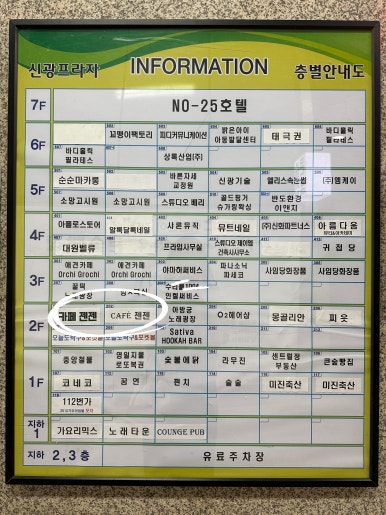 신광프라자
INFORMATION
층별안내도
7F
NO-25호텔
6F
꼬맹이팩토리
피디커뮤니케이션
밝은아이
아동발달센터
태극권
바디홀릭
필라테스
바디홀릭
필라테스
상록산업(주)
5F
순순마카롱
소망고시원
바른자세
교정원
신광기술
엘리스속눈썹
(주)엠케이
소망고시원
소망고시원
스튜디오 베리
골드핑거
슈가링왁싱
반도환경
이앤지
4F
아폴로스토어
알록달록네일
사쁜뮤직
뮤트네일
(주)신화파트너스
아름다움
대원밸류
프라임사무실
스튜디오 제이엠
건축사사무소
귀접당
3F
애견카페
Orchi Grochi
애견카페
Orchi Grochi
야마하써비스
파나소닉
파세코
사임당화장품
사임당화장품
2F
카페 젠젠
CAFÉ 젠젠
아방궁
노래광장
O2헤어샵
몽골리안
피읏
Sativa
HOOKAH BAR
1F
중앙철물
영월지물
로또복권
숯불에닭
라무진
센트럴정
부동산
큰손빨집
코네코
꿈연
펀치
술술
미진축산
미진축산
112번가
지하
1
가요리믹스
노래타운
COUNGE PUB
지하 2,3층
유료주차장